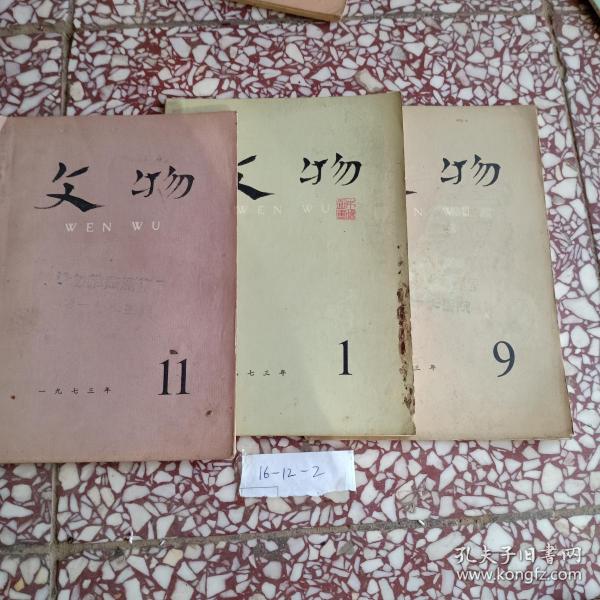 文物
WEN WU
一九七三年
11
文物
WEN WU
七三年
1
物
N WU
三年
9
16-12-2
孔夫子旧书网
www.kongfz.com